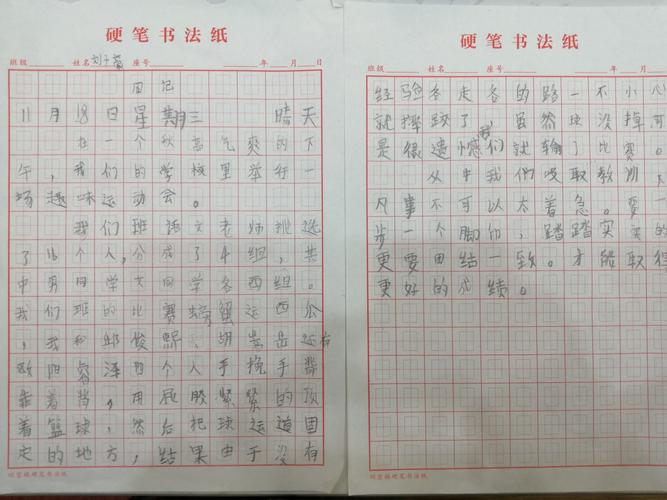 硬笔书法纸
班级 姓名 刘子 座号 年 月 日
日记
11月18日星期三 晴天
在一个秋高气爽的下
午，我们的学校里举行一
场趣味运动会。
我们班语文老师挑选
了16个人，分成了4组，共
中男同学女同学各西组。
我们班的比赛螃蟹运西瓜
，我和邱俊熙，胡岳还有
欧阳睿泽四个人手挽手背
靠着背，用屁股紧紧的顶
着篮球，然后把球运道固
定的地方，结果由于没有
田字格硬笔书法纸
硬笔书法纸
班级 姓名 座号 年 月 日
经验各走各的路一不小心
就摔跤了，虽然球没掉可
是很遗憾我们就输了比赛。
从中我们吸取教训，
凡事不可以太着急。要一
步一个脚印，踏踏实实的
更要团结一致。才能取得
更好的成绩。
田字格硬笔书法纸